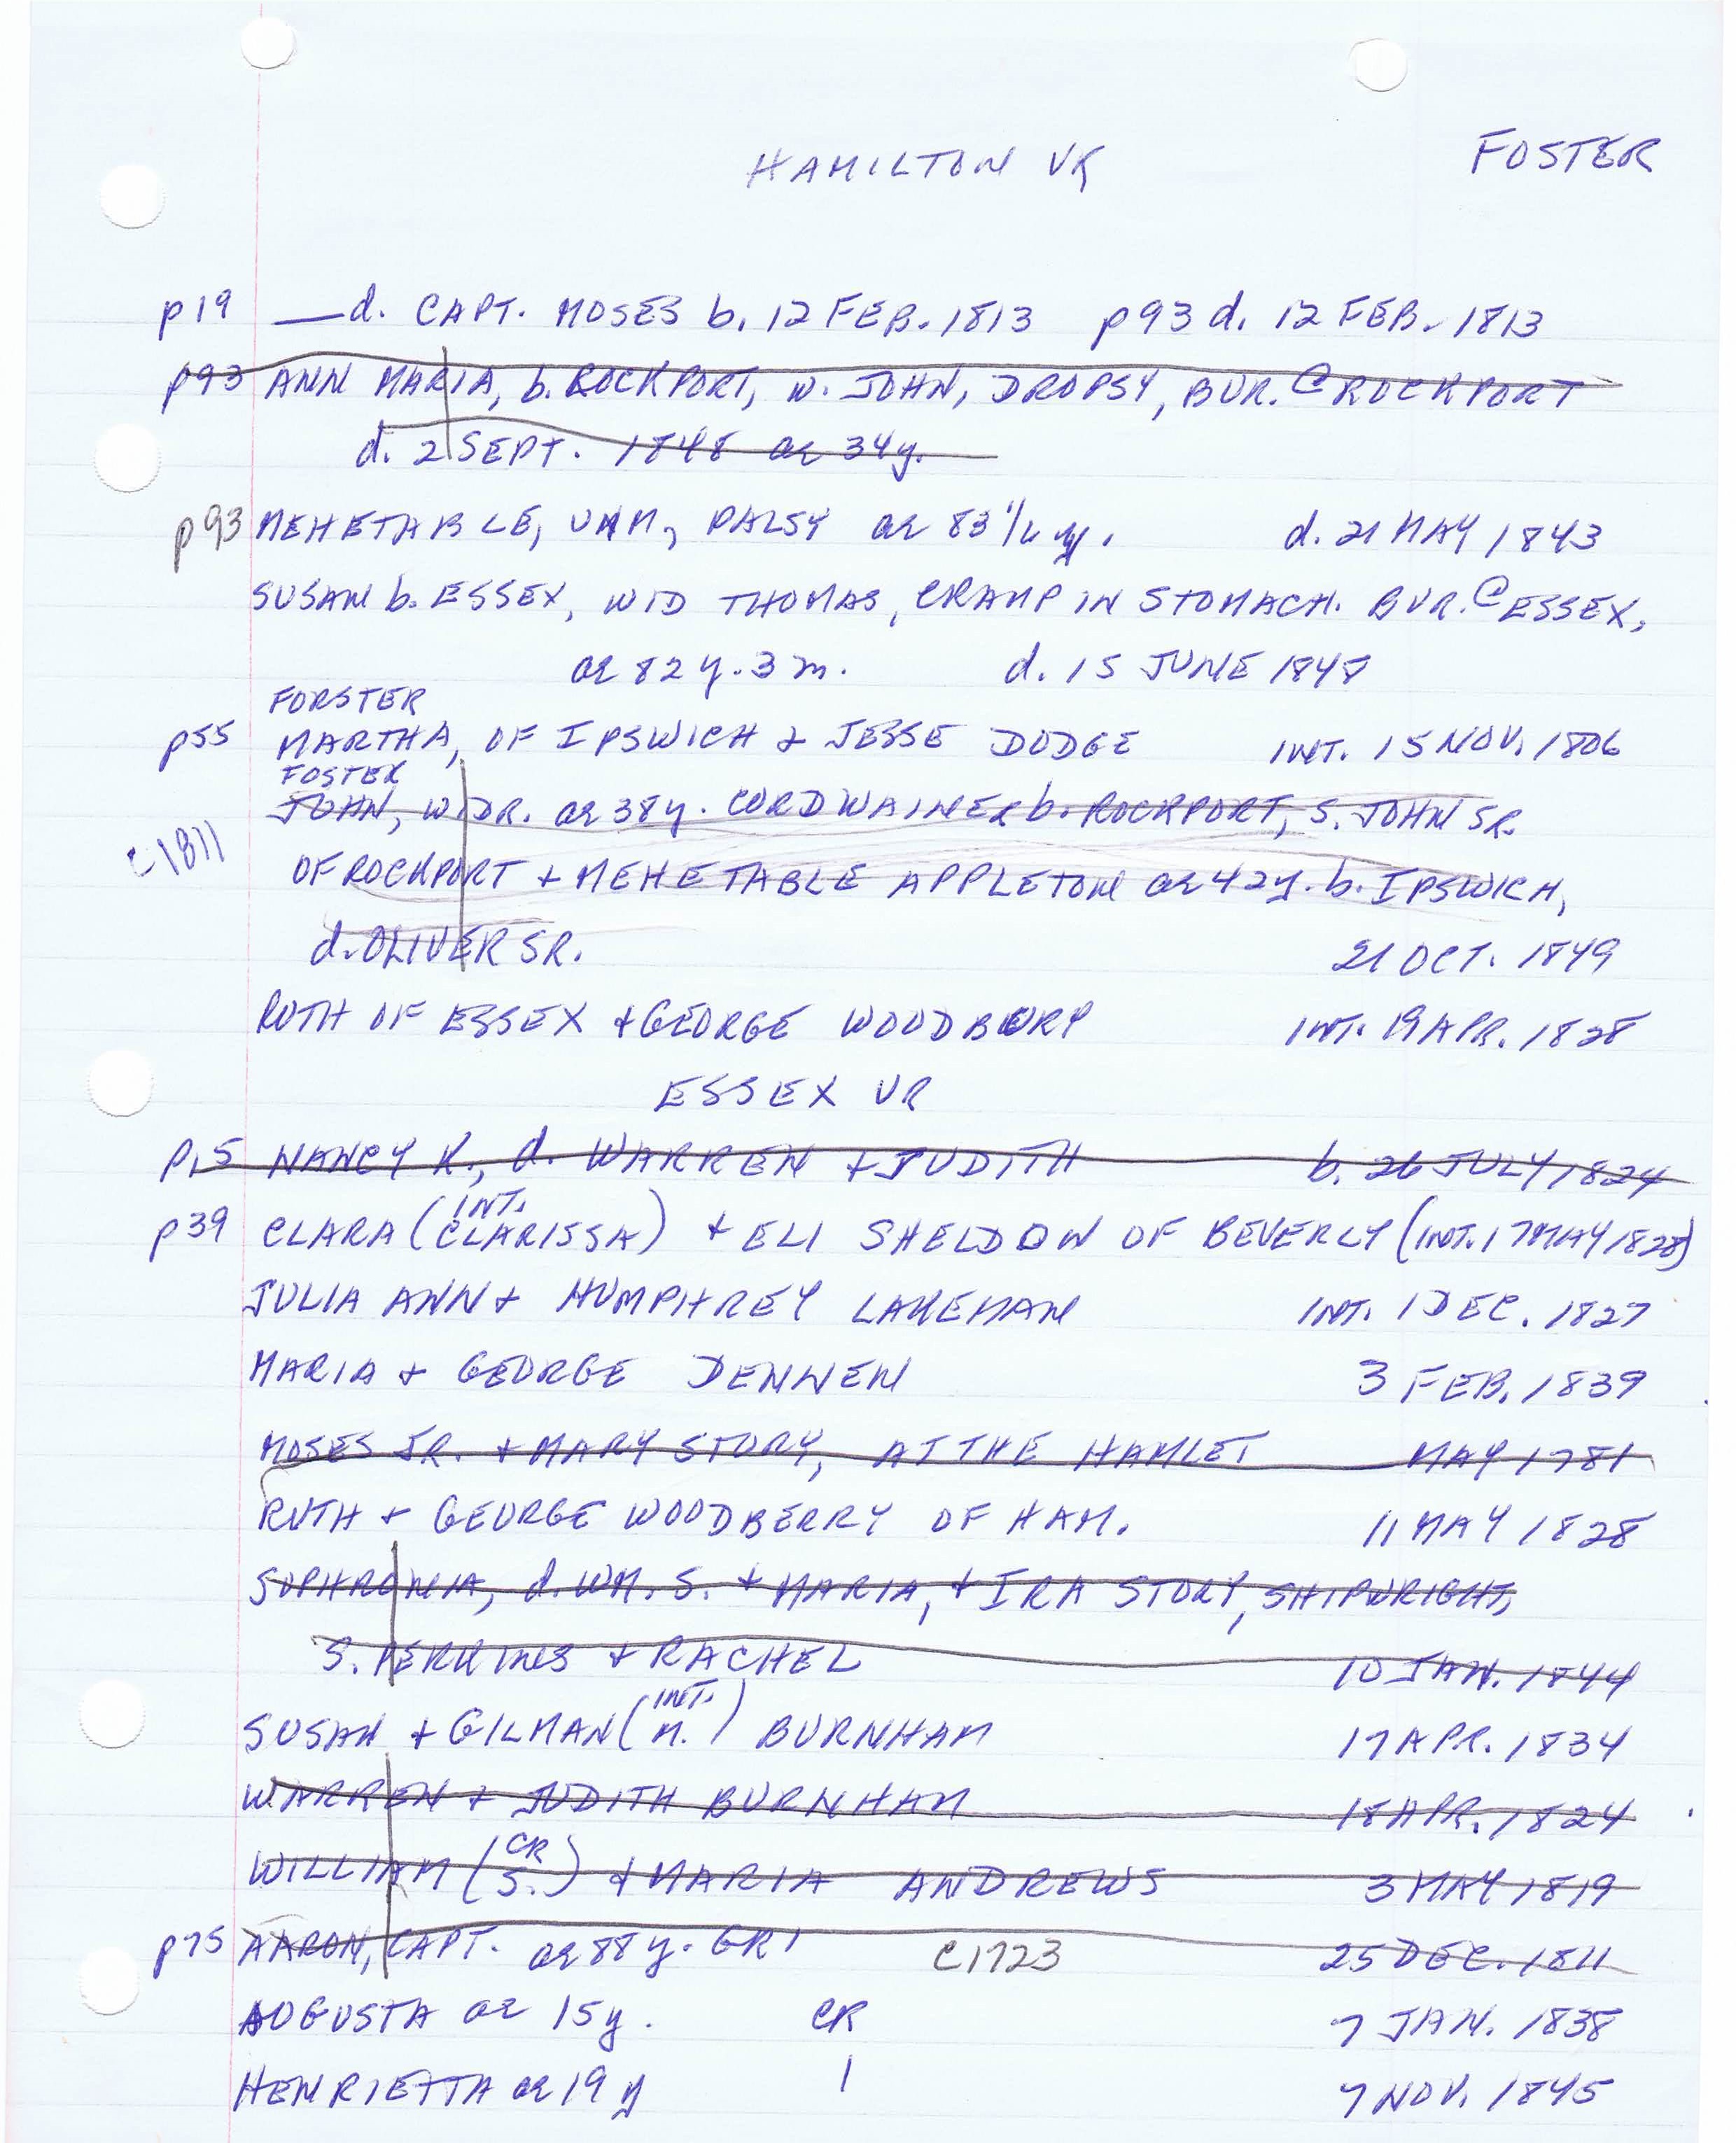 HAMILTON VR
FOSTER
p19 —d. CAPT. MOSES b. 12 FEB. 1813 p93 d. 12 FEB. 1813
p93 ANN MARIA, b. ROCKPORT, w. JOHN, DROPSY, BUR. @ ROCKPORT
d. 2 SEPT. 1848 ae 34y.
p93 MEHETABLE, UNM, PALSY ae 83 1/2 y. d. 21 MAY 1843
SUSAN b. ESSEX, WID THOMAS, CRAMP IN STOMACH. BUR. @ ESSEX,
ae 82 y. 3 m. d. 15 JUNE 1848
FORSTER
p55 MARTHA, OF IPSWICH + JESSE DODGE INT. 15 NOV. 1806
FOSTER
JOHN, WIDR. ae 38y. CORDWAINER b. ROCKPORT, S. JOHN SR.
C1811
OF ROCKPORT + MEHETABLE APPLETON ae 42y. b. IPSWICH,
d. OLIVER SR. 21 OCT. 1849
RUTH OF ESSEX + GEORGE WOODBURY INT. 19 APR. 1828
ESSEX VR
p15 NANCY K., d. WARREN + JUDITH b. 26 JULY 1824
INT.
p39 CLARA (CLARISSA) + ELI SHELDON OF BEVERLY (INT. 17 MAY 1828)
JULIA ANN + HUMPHREY LAKEMAN INT. 1 DEC. 1827
MARIA + GEORGE DENNEN 3 FEB. 1839
MOSES JR. + MARY STORY, AT THE HAMLET MAY 1781
RUTH + GEORGE WOODBERRY OF HAM. 11 MAY 1828
SOPHRONIA, d. WM. S. + MARIA, + IRA STORY, SHIPWRIGHT,
S. PERKINS + RACHEL 10 JAN. 1844
INT.
SUSAN + GILMAN (M.) BURNHAM 17 APR. 1834
WARREN + JUDITH BURNHAM 18 APR. 1824
CR
WILLIAM (S.) + MARIA ANDREWS 3 MAY 1819
p75 AARON, CAPT. ae 88 y. GR1 C1723 25 DEC. 1811
AUGUSTA ae 15y. CR 7 JAN. 1838
HENRIETTA ae 19 y 1 7 NOV. 1845